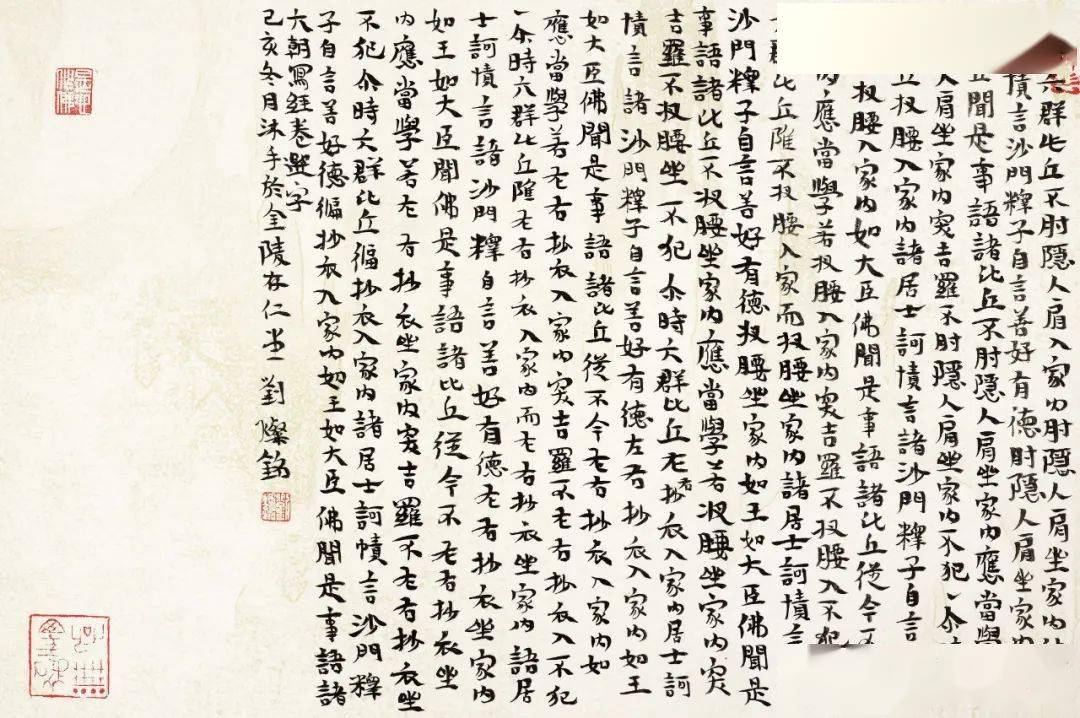 六群比丘不肘隱人肩入家内肘隱人肩坐家内
憒言沙門釋子自言善好有德肘隱人肩坐家内
聞是事語諸比丘不肘隱人肩坐家内應當學
人肩坐家内突吉羅不肘隱人肩坐家内不犯、尒時
丘扠腰入家内諸居士訶憒言諸沙門釋子自言
扠腰入家内如大臣佛聞是事語諸比丘從今不
應當學若扠腰入家内突吉羅不扠腰入不犯
六群比丘雖不扠腰入家而扠腰坐家内諸居士訶憒言
沙門釋子自言善好有德扠腰坐家内如王如大臣佛聞是
事語諸比丘不扠腰坐家内應當學若扠腰坐家内突
吉羅不扠腰坐不犯尒時六群比丘左右抄衣入家内居士訶
憒言諸沙門釋子自言善好有德左右抄衣入家内如王
如大臣佛聞是事語諸比丘從不今左右抄衣入家内如
應當學若左右抄衣入家内突吉羅不左右抄衣入不犯
、尒時六群比丘雖左右抄衣入家内而左右抄衣坐家内語居
士訶憒言諸沙門釋自言善好有德左右抄衣坐家内
如王如大臣聞佛是事語諸比丘從今不左右抄衣坐
内應當學若左右抄衣坐家内突吉羅不左右抄衣坐
不犯尒時六群比丘徧抄衣入家内諸居士訶憒言沙門釋
子自言善好德徧抄衣入家内如王如大臣佛聞是事語諸
六朝寫經卷選字
己亥冬月沐手於金陵存仁堂 劉燦銘